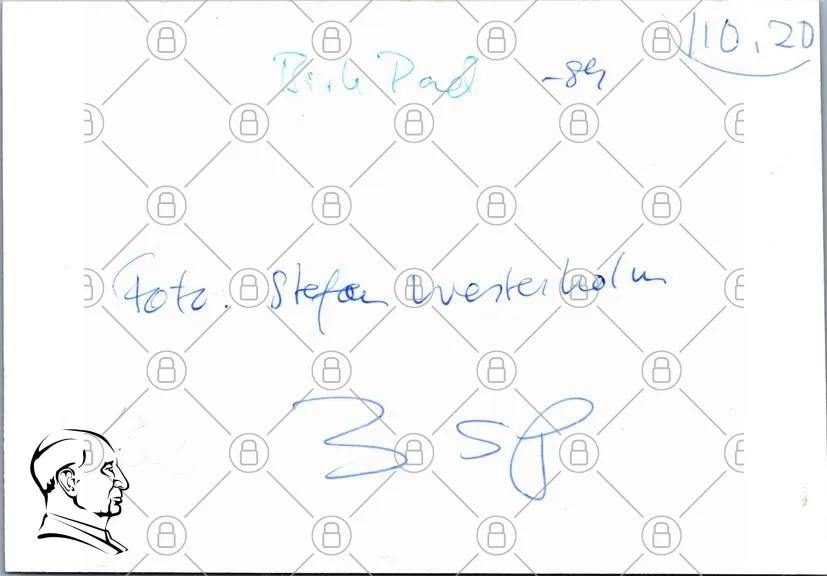 110.20
-84
Foto. Stefan Westerholm
3 sp